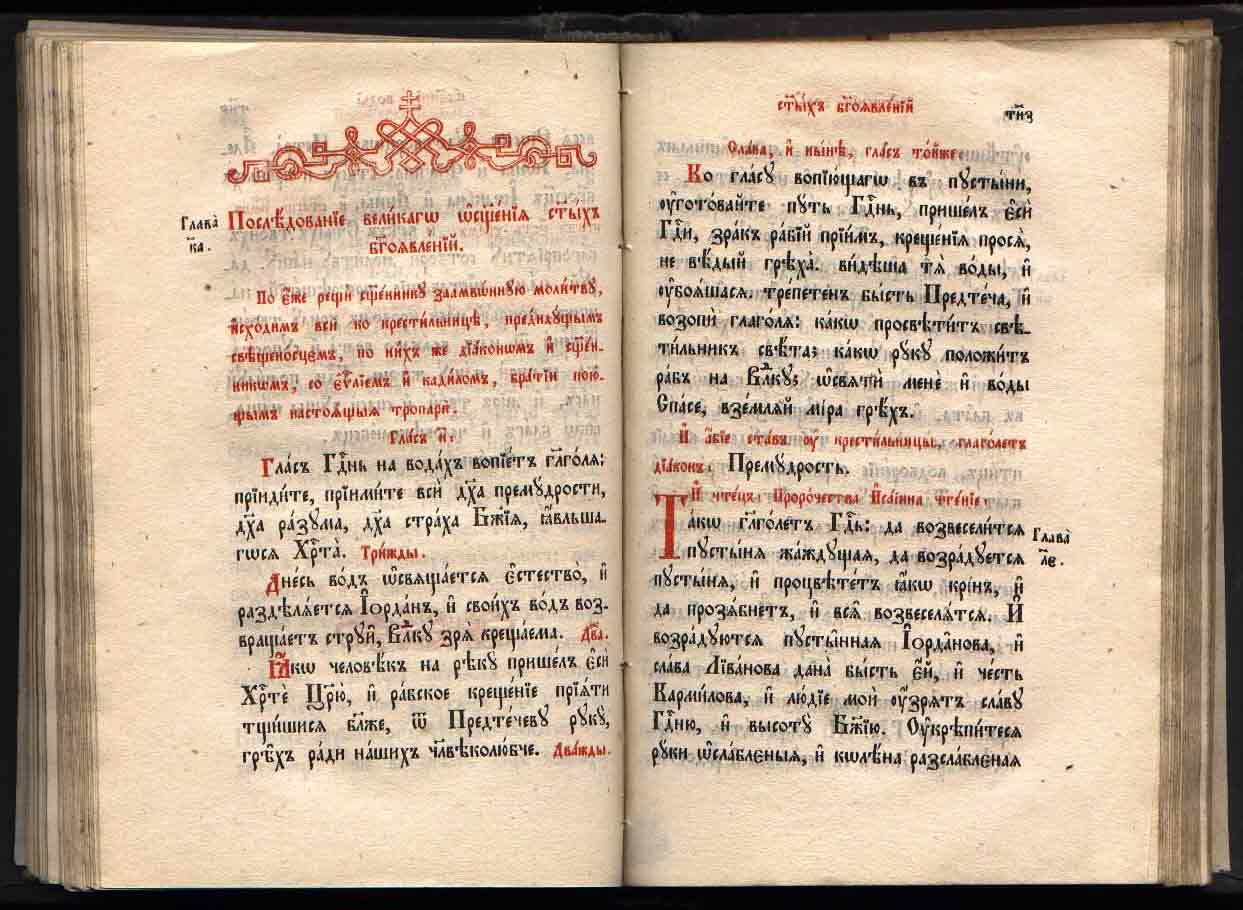 Глава̀
к҃а.
Послѣ́дованїе вели́кагѡ ѡ҆сщ҃е́нїѧ ст҃ы́хъ
бг҃оѧвле́нїй.
По є҆́же рещѝ сщ҃е́ннику заамвѡ́нную моли́тву,
и҆схо́димъ всѝ ко крести́льницѣ, предиду́щымъ
свѣщено́сцемъ, по ни́хъ же дїа́кѡнѡмъ и҆ сщ҃е́н-
никѡмъ, со є҆ѵⷢ҇лїемъ и҆ кади́ломъ, бра́тїи пою́-
щымъ настоѧ́щыѧ тропарѝ.
Гла́съ и҃.
Гла́съ гдⷭ҇нь на вода́хъ вопїе́тъ гл҃го́лѧ:
прїиди́те, прїими́те всѝ дх҃а премꙋ́дрости,
дх҃а ра́зꙋма, дх҃а стра́ха бж҃їѧ, ꙗ҆́вльша-
гѡсѧ хрⷭ҇та̀. Три́жды.
Дне́сь во́дъ ѡ҆свѧща́етсѧ є҆стество̀, и҆
раздѣлѧ́етсѧ і҆ѻрда́нъ, и҆ свои́хъ во́дъ воз-
враща́етъ струи̑, влⷣку зрѧ̀ креща́ема. Два́.
Ꙗ҆́кѡ человѣ́къ на рѣкꙋ̀ прише́лъ є҆сѝ
хрⷭ҇тѐ цр҃ю̀, и҆ ра́бское креще́нїе прїѧ́ти
тщи́шисѧ бл҃же, ѿ предте́чевꙋ рꙋкꙋ̀,
грѣ̑хъ ра́ди на́шихъ чл҃вѣколю́бче. Два́жды.
ст҃ы́хъ бг҃оѧвле́нїй
тн҃з
Сла́ва, и҆ ны́нѣ, гла́съ то́йже:
Ко гла́сꙋ вопїю́щагѡ въ пꙋсты́ни,
ᲂу҆гото́вайте пꙋ́ть гдⷭ҇нь, прише́лъ є҆сѝ
гдⷭ҇и, зра́къ ра́бїй прїи́мъ, креще́нїѧ просѧ̀,
не вѣ́дый грѣха̀. ви́дѣша тѧ̀ во́ды, и҆
ᲂу҆боѧ́шасѧ. тре́петенъ бы́сть Предте́ча, и҆
возопѝ глаго́лѧ: ка́кѡ просвѣти́тъ свѣ-
ти́льникъ свѣ́та; ка́кѡ рꙋ́кꙋ положи́тъ
ра́бъ на влⷣкꙋ; ѡ҆свѧтѝ менѐ и҆ во́ды
Спа́се, взе́млѧй мі́ра грѣ́хъ.
И҆ а҆́бїе ста́въ ᲂу҆ крести́льницы, глаго́летъ
дїа́конъ: Премꙋ́дрость.
И҆ чте́цъ: Проро́чества И҆са́їина чте́нїе:
Та́кѡ гл҃го́летъ гдⷭ҇ь: да возвесели́тсѧ
пꙋсты́нѧ жа́ждꙋщаѧ, да возра́дꙋетсѧ
пꙋсты́нѧ, и҆ процвѣте́тъ ꙗ҆́кѡ крі́нъ, и҆
да прозѧ́бнетъ, и҆ всѧ̑ возвеселѧ́тсѧ. И҆
возра́дꙋютсѧ пꙋсты̑ннаѧ і҆ѻрда́нова, и҆
сла́ва лїва́нова дана̀ бы́сть є҆́й, и҆ че́сть
карми́лова, и҆ лю́дїе мои̑ ᲂу҆́зрѧтъ сла́вꙋ
гдⷭ҇ню, и҆ высотꙋ̀ бж҃їю. Оу҆крѣпи́тесѧ
рꙋки ѡ҆сла́блєныѧ, и҆ кѡлѣ́на разсла́блєнаѧ
Глава̀
л҃е.